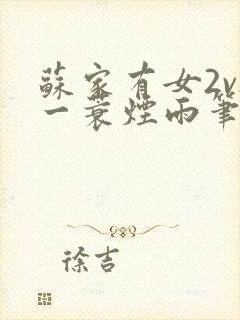 蘇家有女2v
一蓑煙雨筆
徐吉